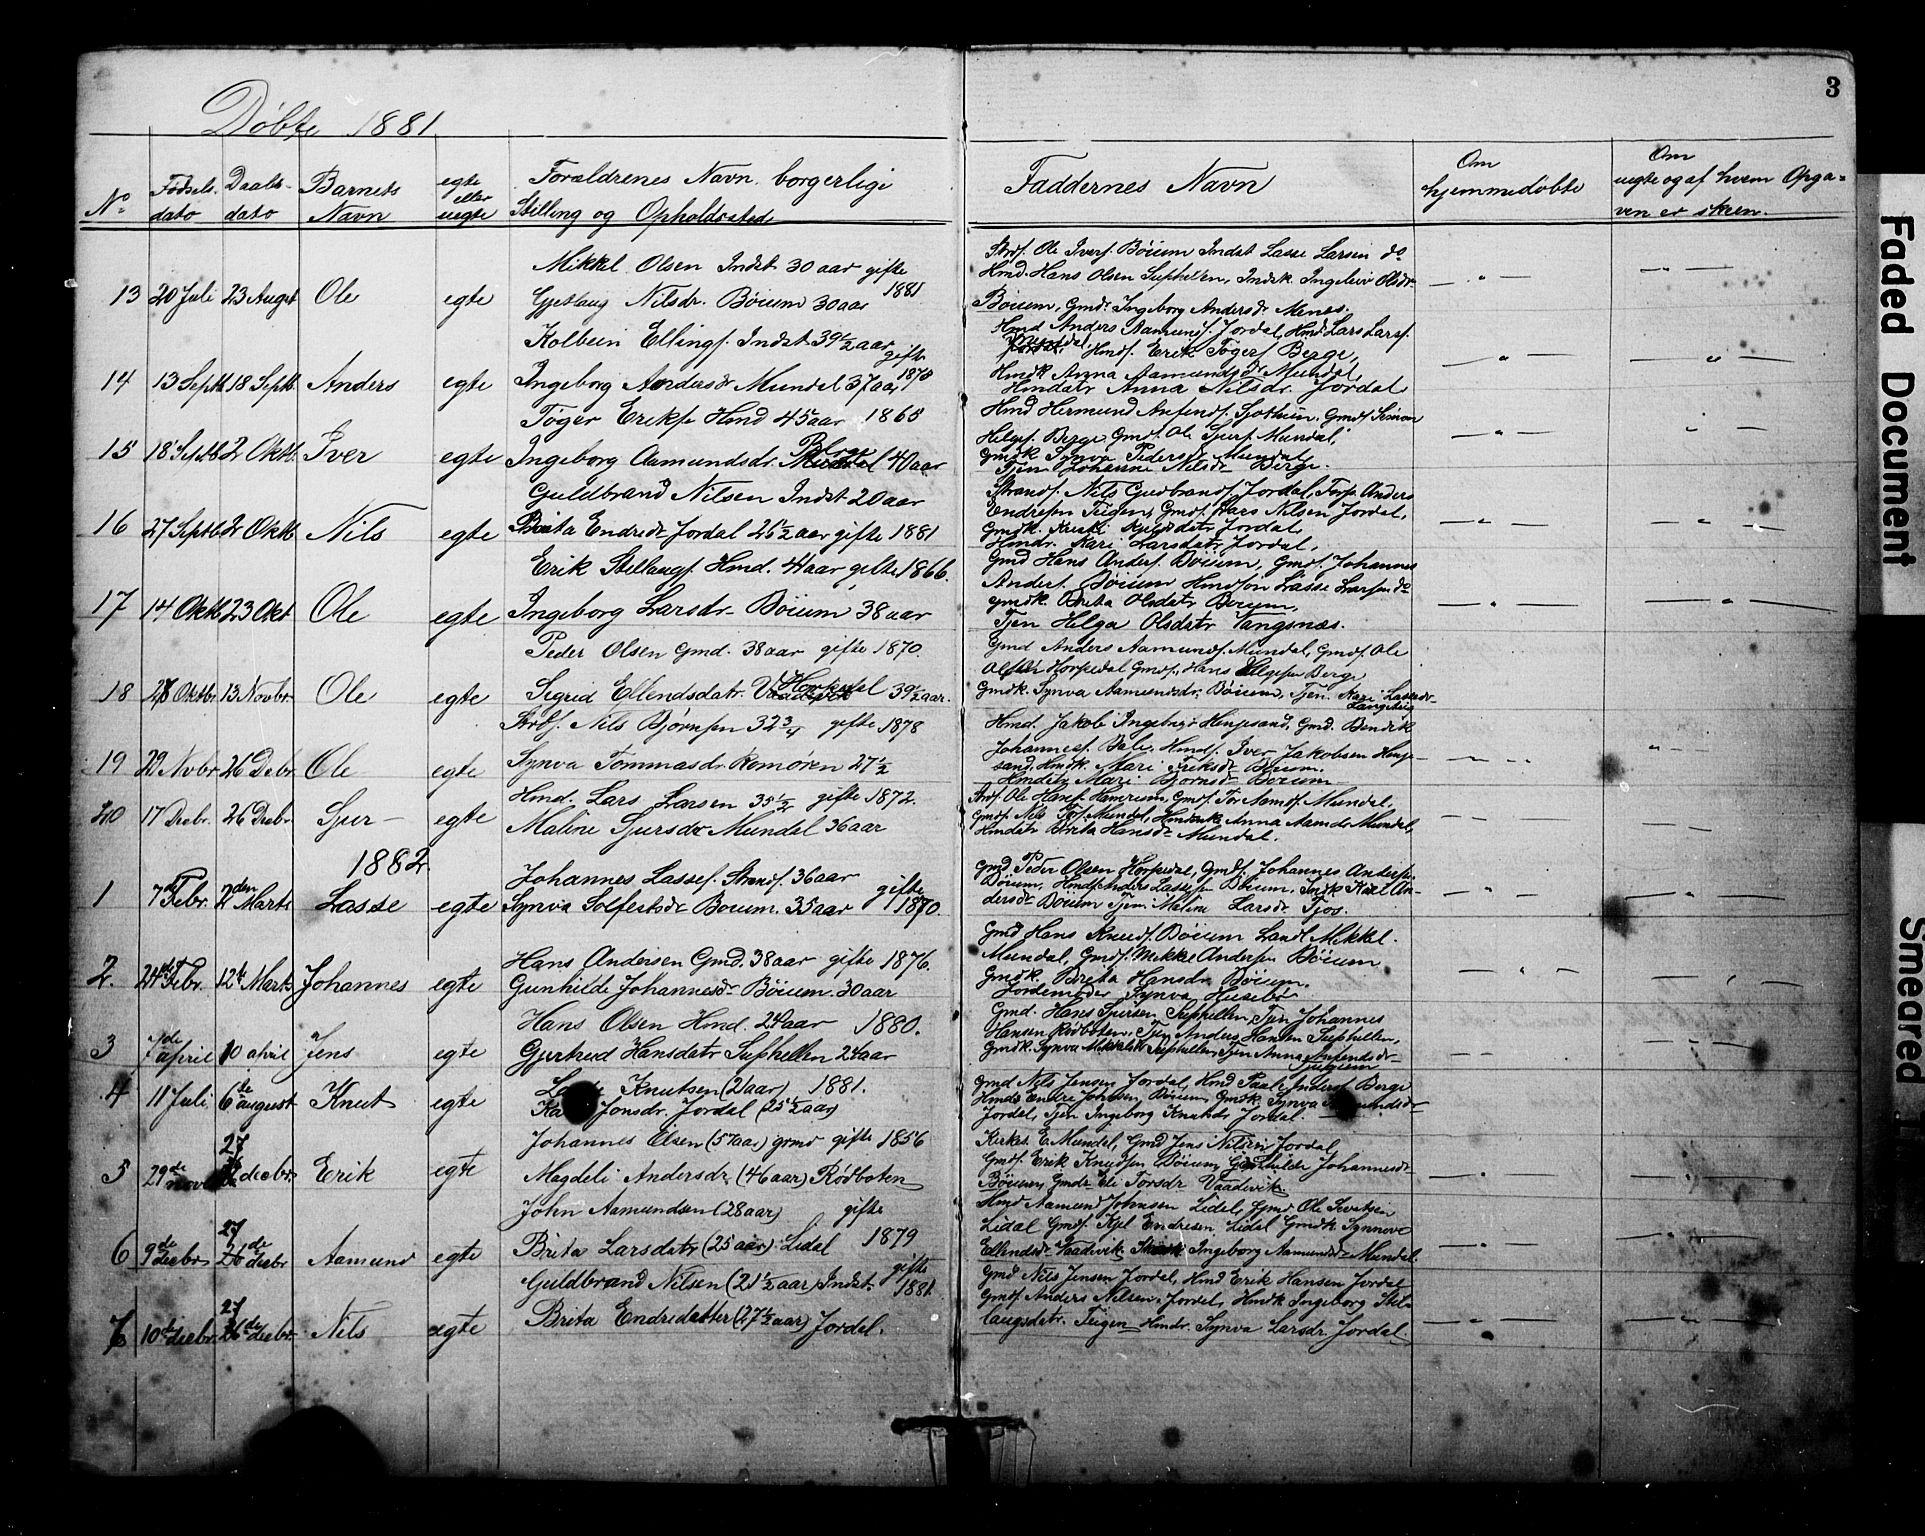 3
Døbte 1881
No Fødsels- dato Daabs- dato Barnets Navn egte eller uegte Forældrenes Navn borgerlige Stilling og Opholdssted
Faddernes Navn Om hjemmedøbte Om uegte og af hvem Opga= ven er skeen.
13 20 Juli 23 August Ole egte
Mikkel Olsen Indst 30 aar gifte 1881
Gjetlaug Nilsdr. Bøium 30 aar
Strdf. Ole Iverf. Bøium Indst Lasse Larsen do
Hmd. Hans Olsen Suphellen, Indstk. Ingeleiv Olsdr
Bøium, Gmdr Ingeborg Andersdr Menes.
14 13 Septb 18 Septb Anders egte
Kolbein Ellingf. Indst 39½ aar gifte 1878
Ingeborg Andersdr Mundal 37 aar
Hmd Anders Aamundf. Jordal, Hmd. Lars Larsf.
Mundal, Hmdf. Erik Tøgerf Berge,
Hmdk Anna Aamundsdr Mundal,
Hmdatr Anna Nilsdr. Jordal
15 18 Septb 2 Oktb. Iver egte
Tøger Erikf. Hmd 45 aar 1865
Ingeborg Aamundsdr. Berge 40 aar
Hmd Hermund Anfindf. , Gmdf. Simon
Helgef. Berge, Gmdf. Ole Sjurf Mundal,
Gmdk Synva Pedersdr Mundal
Tjen Johanne Nilsdr Berge.
16 27 Septb 2 Oktb Nils egte
Guldbrand Nilsen Indst 20 aar
Brita Endredr Jordal 26½ aar gifte 1881
Strandf. Nils Gudbrandf. Jordal, Anders
Endresen Teigen, Gmdf. Lars Nilsen Jordal,
Gmdk. Jordal
Hmdr. Kari Larsdatr Jordal.
17 14 Oktb 23 Okt Ole egte
Erik Stellaugf. Hmd. 41 aar gifte 1866.
Ingeborg Larsdr Bøium 38 aar
Gmd Hans Andersf. Bøium, Gmdf. Johannes
Andersf. Bøium Hmdsøn Lasse Larsen do
Gmdk. Brita Olsdatr Bøium,
Tjen Helga Olsdatr Vangsnæs.
18 28 Oktbr 13 Novbr. Ole egte
Peder Olsen Gmd. 38 aar gifte 1870.
Sigrid Ellendsdatr. Horpedal 39½ aar.
Gmd Anders Aamundf. Mundal, Gmdf. Ole
Olsen Horpedal Gmdf. Hans Helgesen Berge
Gmdk. Synva Aamundsdr. Bøium, Tjen. Kari Lassedr
19 29 Novbr 26 Debr. Ole egte
Strdf. Nils Bjørnsen 32¾ gifte 1878
Synva Tommasdr. Romøren 27½
Hmd. Jakob Ingebrigs Hengesand, Gmd. Bendik
Johannesf. Bale, Hmdf. Iver Jakobsen Henge-
sand, Hmdk. Mari Eriksdr Bøium.
Hmdatr Mari Bjørnsdr Bøium
20 17 Decbr. 26 Decbr Sjur egte
Hmd. Lars Larsen 35½ gifte 1872.
Maline Sjursdr Mundal 36 aar
Strdf. Ole Hansf Hamrum, Gmdf. Tor Aamdf. Mundal,
Gmdf. Nils Torf. Mundal, Hmdmk Anna Aamdr Mundal,
Hmdatr Brita Hansdr Mundal.
1882.
1 7de Febr. 2den Marts Lasse egte
Johannes Lassef. Strandf. 36 aar gifte 1870.
Synva Solfestsdr Bøium. 35 aar
Gmd. Peder Olsen Horpedal, Gmdf. Johannes Andersen
Bøium, Hmdf. Anders Lassesen Bøium, Indk Kari An-
dersdr Bøium Tjen. Maline Larsdr Tjos.
2. 24de Febr. 12te Marts Johannes egte
Hans Andersen Gmd. 38 aar gifte 1876.
Gunhilde Johannesdr Bøium. 30 aar
Gmd Hans Knudf. Bøium Landh Mikkel.
Mundal, Gmdf. Mikkel Andersen Bøium
Gmdk. Brita Hansdr Bøium.
Jordemoder Synva Husebø
3 7de april 10 april Jens egte
Hans Olsen Hmd. 24 aar 1880.
Gjertrud Hansdatr Suphellen 24 aar
Gmd. Hans Sjursen Suphellen, Tjen Johannes
Hansen Rødboten, Tjen Anders Hansen Suphellen,
Gmdk. Synva Mikkelsdr Suphellen, Tjen Anna
4 11 Juli 6te august Knut egte
Knutsen (21 aar) 1881.
Jonsdr. Jordal (25½ aar)
Gmd Nils Jensen Jordal, Hmd Paal Andersf Berge
Hmds Endre Johnsen Bøium, Gmdk Synva
Jordal, Tjen Ingeborg Knutsdr Jordal
5 29de novb 27 decbr. Erik egte
Johannes Elsen (57 aar) gmd gifte 1856
Magdeli Andersdr. (46 aar) Rødboten
Kirkes. E. Mundal, Gmd Jens Nilsen Jordal
Gmdf. Erik Knudsen Bøium, Gunhilde Johannesdr
Bøium, Gmdr Eli Torsdr Vaadevik
6 9de decbr 27 26de decbr Aamund egte
John Aamundsen (28 aar) gifte 1879
Brita Larsdatr (25 aar) Lidal
Hmd Aamund Johnsen Lidal, Gmd Ole Sevatsen
Lidal Gmdf. Kjel Endresen Lidal Gmdk Synnove
Ellendsdr Vaadevik, Ingeborg Aamundsdr Mundal.
7 10de decbr. 27 26de decbr. Nils egte
Guldbrand Nilsen (21½ aar) Indst. gifte 1881
Brita Endredatter (27½ aar) Jordal.
Gmd Nils Jensen Jordal, Hmd Erik Hansen Jordal
Gmdf Anders Nilsen, Jordal, Hmdk Ingeborg Stel-
laugsdatr. Teigen Hmdr. Synva Larsdr. Jordal.
Faded Document
Smeared